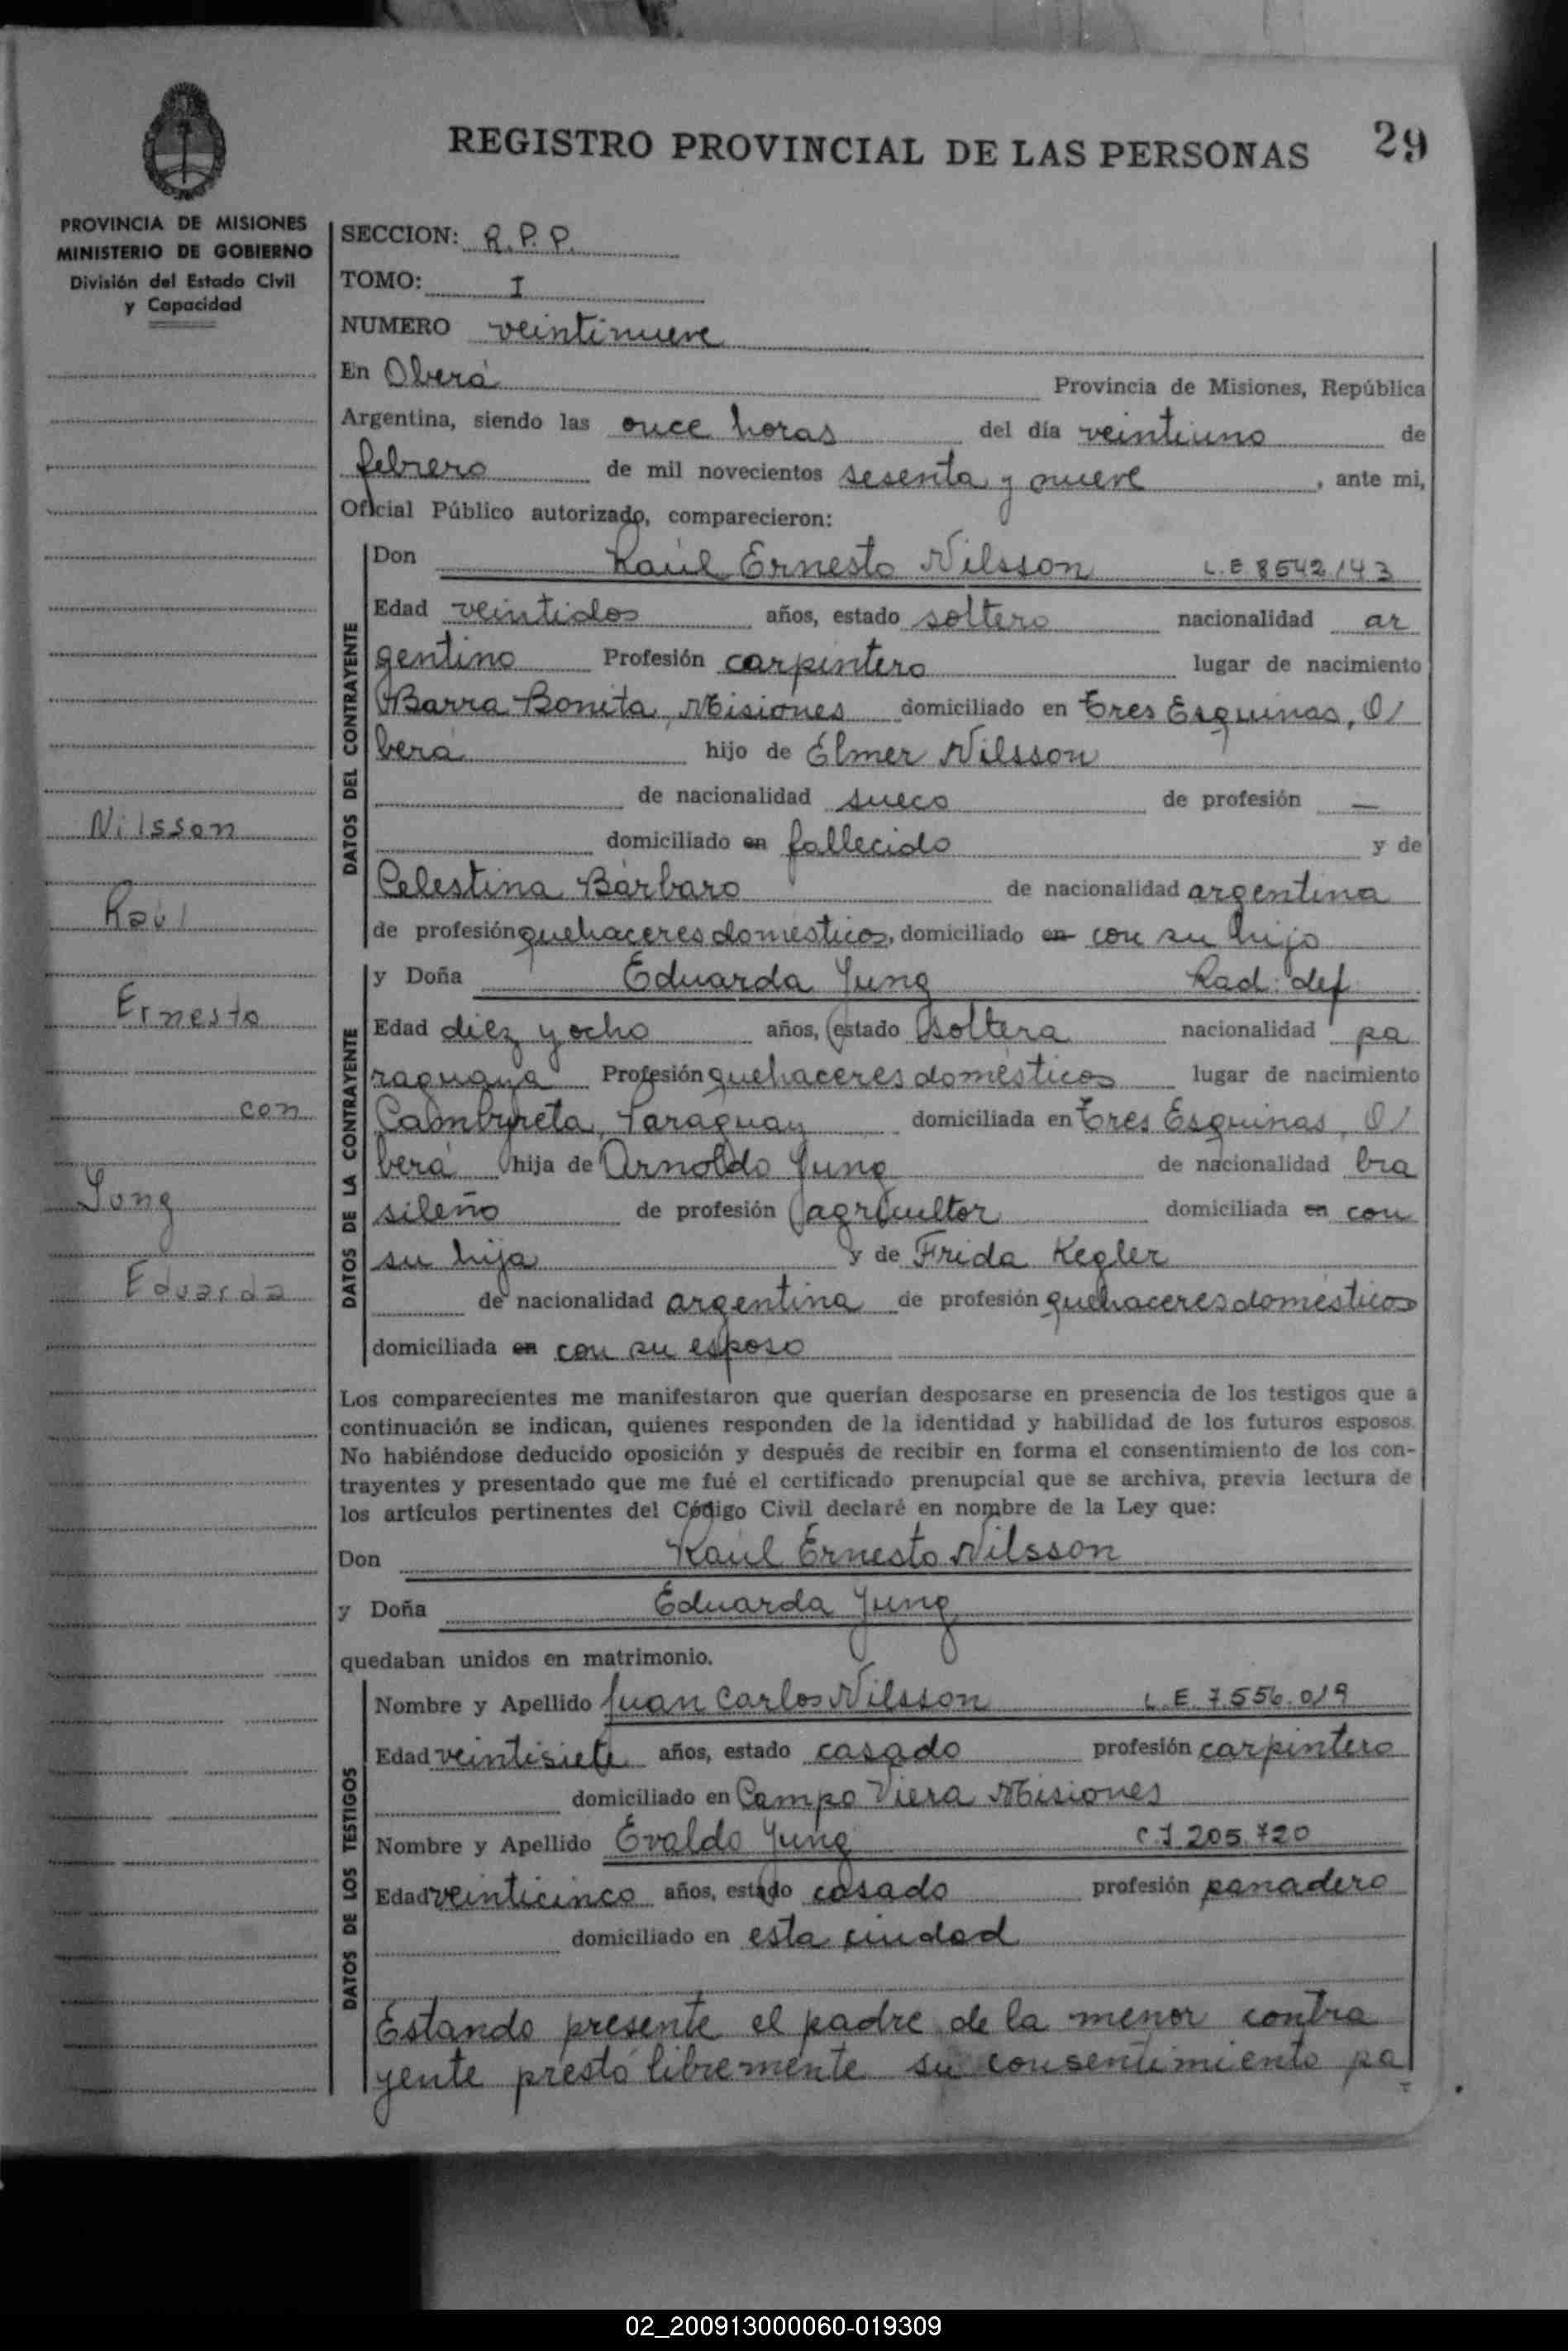 REGISTRO PROVINCIAL DE LAS PERSONAS 29
PROVINCIA DE MISIONES
MINISTERIO DE GOBIERNO
División del Estado Civil
y Capacidad
SECCION: R.P.P.
TOMO: I
NUMERO veintinueve
En Oberá Provincia de Misiones, República
Argentina, siendo las once horas del día veintiuno de
febrero de mil novecientos sesenta y nueve, ante mi,
Oficial Público autorizado, comparecieron:
DATOS DEL CONTRAYENTE
Don Raúl Ernesto Nilsson L.E 8542143
Edad veintidos años, estado soltero nacionalidad ar
gentino Profesión carpintero lugar de nacimiento
Barra Bonita, Misiones domiciliado en Tres Esquinas, O/
berá hijo de Elmer Nilsson
de nacionalidad sueco de profesión —
domiciliado en fallecido y de
Celestina Bárbaro de nacionalidad argentina
de profesión quehaceres domésticos, domiciliado en con su hijo
DATOS DE LA CONTRAYENTE
y Doña Eduarda Jung Rad. def.
Edad diez y ocho años, estado soltera nacionalidad pa
raguaya Profesión quehaceres domésticos lugar de nacimiento
Cambyreta, Paraguay domiciliada en Tres Esquinas, O/
berá hija de Arnoldo Jung de nacionalidad bra
sileño de profesión agricultor domiciliada en con
su hija y de Frida Kegler
de nacionalidad argentina de profesión quehaceres domésticos
domiciliada en con su esposo
Nilsson
Raúl
Ernesto
con
Jung
Eduarda
Los comparecientes me manifestaron que querían desposarse en presencia de los testigos que a
continuación se indican, quienes responden de la identidad y habilidad de los futuros esposos.
No habiéndose deducido oposición y después de recibir en forma el consentimiento de los con-
trayentes y presentado que me fué el certificado prenupcial que se archiva, previa lectura de
los artículos pertinentes del Código Civil declaré en nombre de la Ley que:
Don Raúl Ernesto Nilsson
y Doña Eduarda Jung
quedaban unidos en matrimonio.
DATOS DE LOS TESTIGOS
Nombre y Apellido Juan Carlos Nilsson L.E. 7.556.019
Edad veintisiete años, estado casado profesión carpintero
domiciliado en Campo Viera Misiones
Nombre y Apellido Evaldo Jung C.I 205.720
Edad veinticinco años, estado casado profesión panadero
domiciliado en esta ciudad
Estando presente el padre de la menor contra
yente prestó libremente su consentimiento pa
02_200913000060-019309